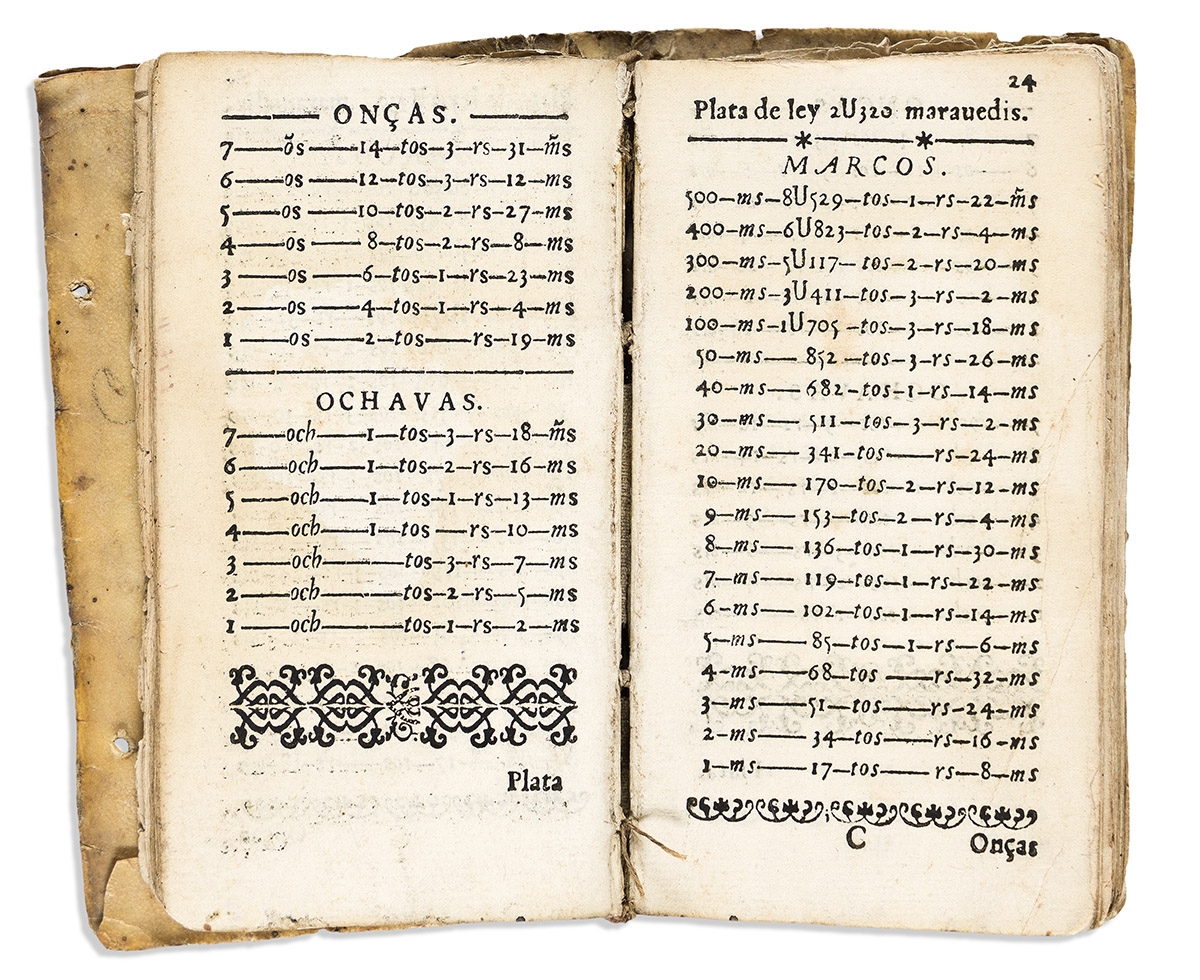 ONÇAS.
7——õs——14—tos—3—rs—31—m̃s
6——os——12—tos—3—rs—12—ms
5——os——10—tos—2—rs—27—ms
4——os——8—tos—2—rs—8—ms
3——os——6—tos—1—rs—23—ms
2——os——4—tos—1—rs—4—ms
1——os——2—tos——rs—19—ms
OCHAVAS.
7——och——1—tos—3—rs—18—m̃s
6——och——1—tos—2—rs—16—ms
5——och——1—tos—1—rs—13—ms
4——och——1—tos——rs—10—ms
3——och————tos—3—rs—7—ms
2——och————tos—2—rs—5—ms
1——och————tos—1—rs—2—ms
Plata
24
Plata de ley 2U320 marauedis.
MARCOS.
500—ms—8U529—tos—1—rs—22—m̃s
400—ms—6U823—tos—2—rs—4—ms
300—ms—5U117—tos—2—rs—20—ms
200—ms—3U411—tos—3—rs—2—ms
100—ms—1U705—tos—3—rs—18—ms
50—ms—852—tos—3—rs—26—ms
40—ms—682—tos—1—rs—14—ms
30—ms—511—tos—3—rs—2—ms
20—ms—341—tos——rs—24—ms
10—ms—170—tos—2—rs—12—ms
9—ms—153—tos—2—rs—4—ms
8—ms—136—tos—1—rs—30—ms
7—ms—119—tos—1—rs—22—ms
6—ms—102—tos—1—rs—14—ms
5—ms—85—tos—1—rs—6—ms
4—ms—68—tos——rs—32—ms
3—ms—51—tos——rs—24—ms
2—ms—34—tos——rs—16—ms
1—ms—17—tos——rs—8—ms
C Onças